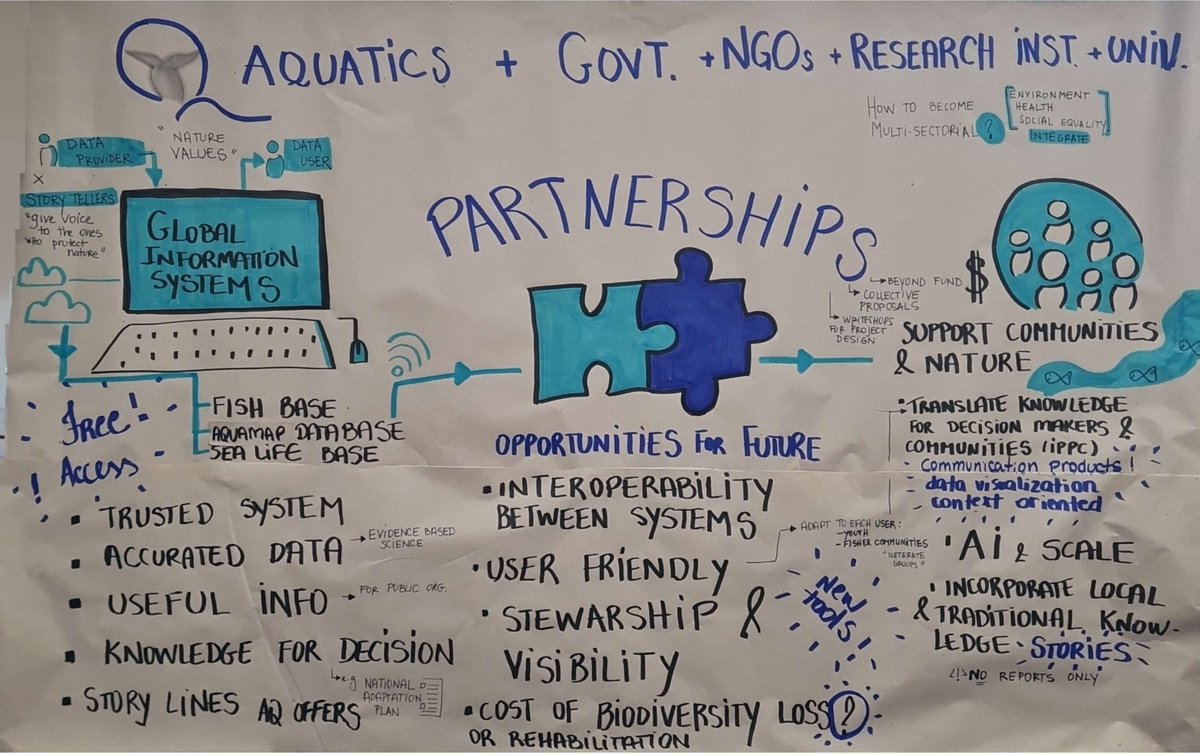 Q AQUATICS + GOVT. + NGOs + RESEARCH INST. + UNIV.
HOW TO BECOME
MULTI-SECTORIAL ?
ENVIRONMENT
HEALTH
SOCIAL EQUALITY
INTEGRATE
DATA
PROVIDER
"NATURE
VALUES"
DATA
USER
X
STORY TELLERS
"give voice
to the ones
who protect
nature"
GLOBAL
INFORMATION
SYSTEMS
Free!
! Access
FISH BASE
AQUAMAP DATABASE
SEA LIFE BASE
▪ TRUSTED SYSTEM
▪ ACCURATED DATA
EVIDENCE BASED
SCIENCE
▪ USEFUL INFO
FOR PUBLIC ORG.
▪ KNOWLEDGE FOR DECISION
e.g NATIONAL
ADAPTATION
PLAN
▪ STORY LINES AQ OFFERS
PARTNERSHIPS
BEYOND FUND $
COLLECTIVE
PROPOSALS
WRITESHOPS
FOR PROJECT
DESIGN
OPPORTUNITIES FOR FUTURE
▪ INTEROPERABILITY
BETWEEN SYSTEMS
▪ USER FRIENDLY
ADAPT TO EACH USER:
- YOUTH
- FISHER COMMUNITIES
"ILETERATE
GROUPS"
▪ STEWARSHIP &
VISIBILITY
New
tools
▪ COST OF BIODIVERSITY LOSS ?
OR REHABILITATION
SUPPORT COMMUNITIES
& NATURE
▪ TRANSLATE KNOWLEDGE
FOR DECISION MAKERS &
COMMUNITIES (iPPC)
- Communication products!
- data visualization
- context oriented
▪ Ai & SCALE
▪ INCORPORATE LOCAL
& TRADITIONAL KNOW-
LEDGE · STORIES
<!> NO REPORTS ONLY